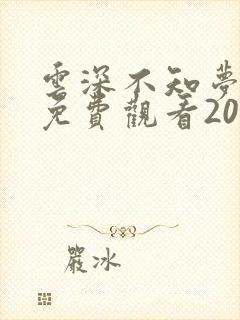 雲深不知夢
免費觀看20
嚴冰